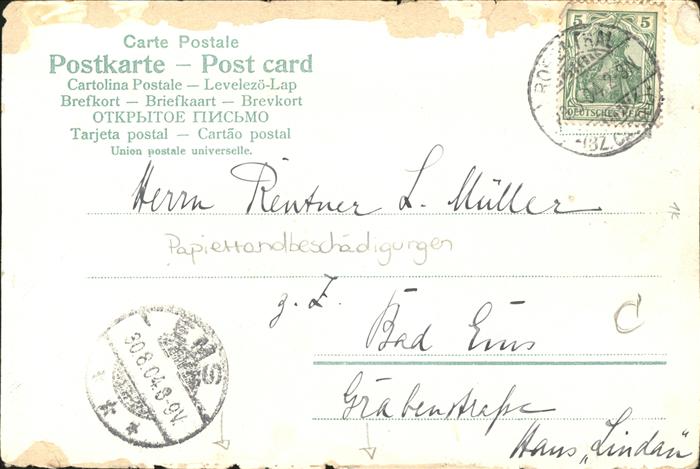 Carte Postale
Postkarte – Post card
Cartolina Postale – Levelezö-Lap
Brefkort – Briefkaart – Brevkort
ОТКРЫТОЕ ПИСЬМО
Tarjeta postal – Cartão postal
Union postale universelle.
5 5
DEUTSCHES REICH
Herrn Rentner L. Müller
Papierrandbeschädigungen
z. Z.
Bad Ems
C
EMS
30.8.04.8-9V.
Grabenstraße
Haus „Lindau“